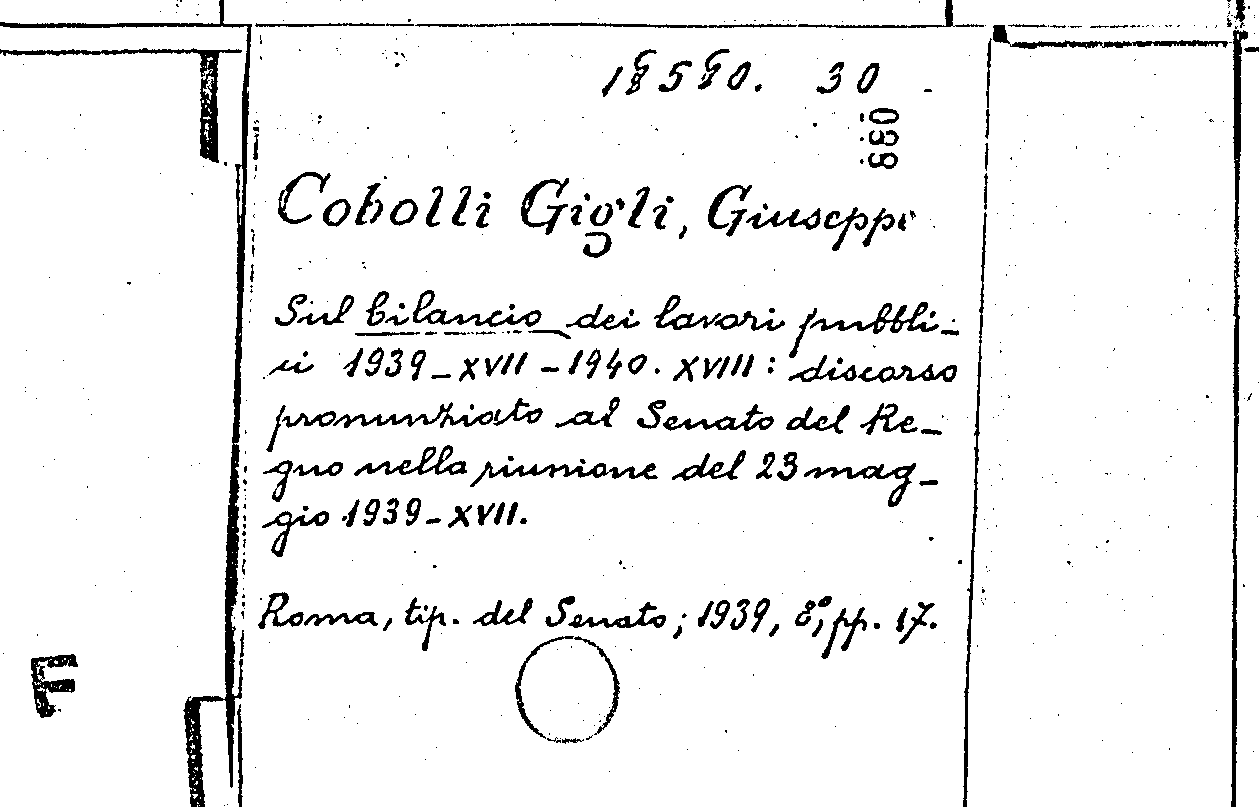 18580. 30
099
Cobolli Gigli, Giuseppe
Sul bilancio dei lavori pubbli-
ci 1939-XVII-1940. XVIII: discorso
pronunziato al Senato del Re-
gno nella riunione del 23 mag-
gio 1939-XVII.
Roma, tip. del Senato; 1939, 8°, pp. 17.
F